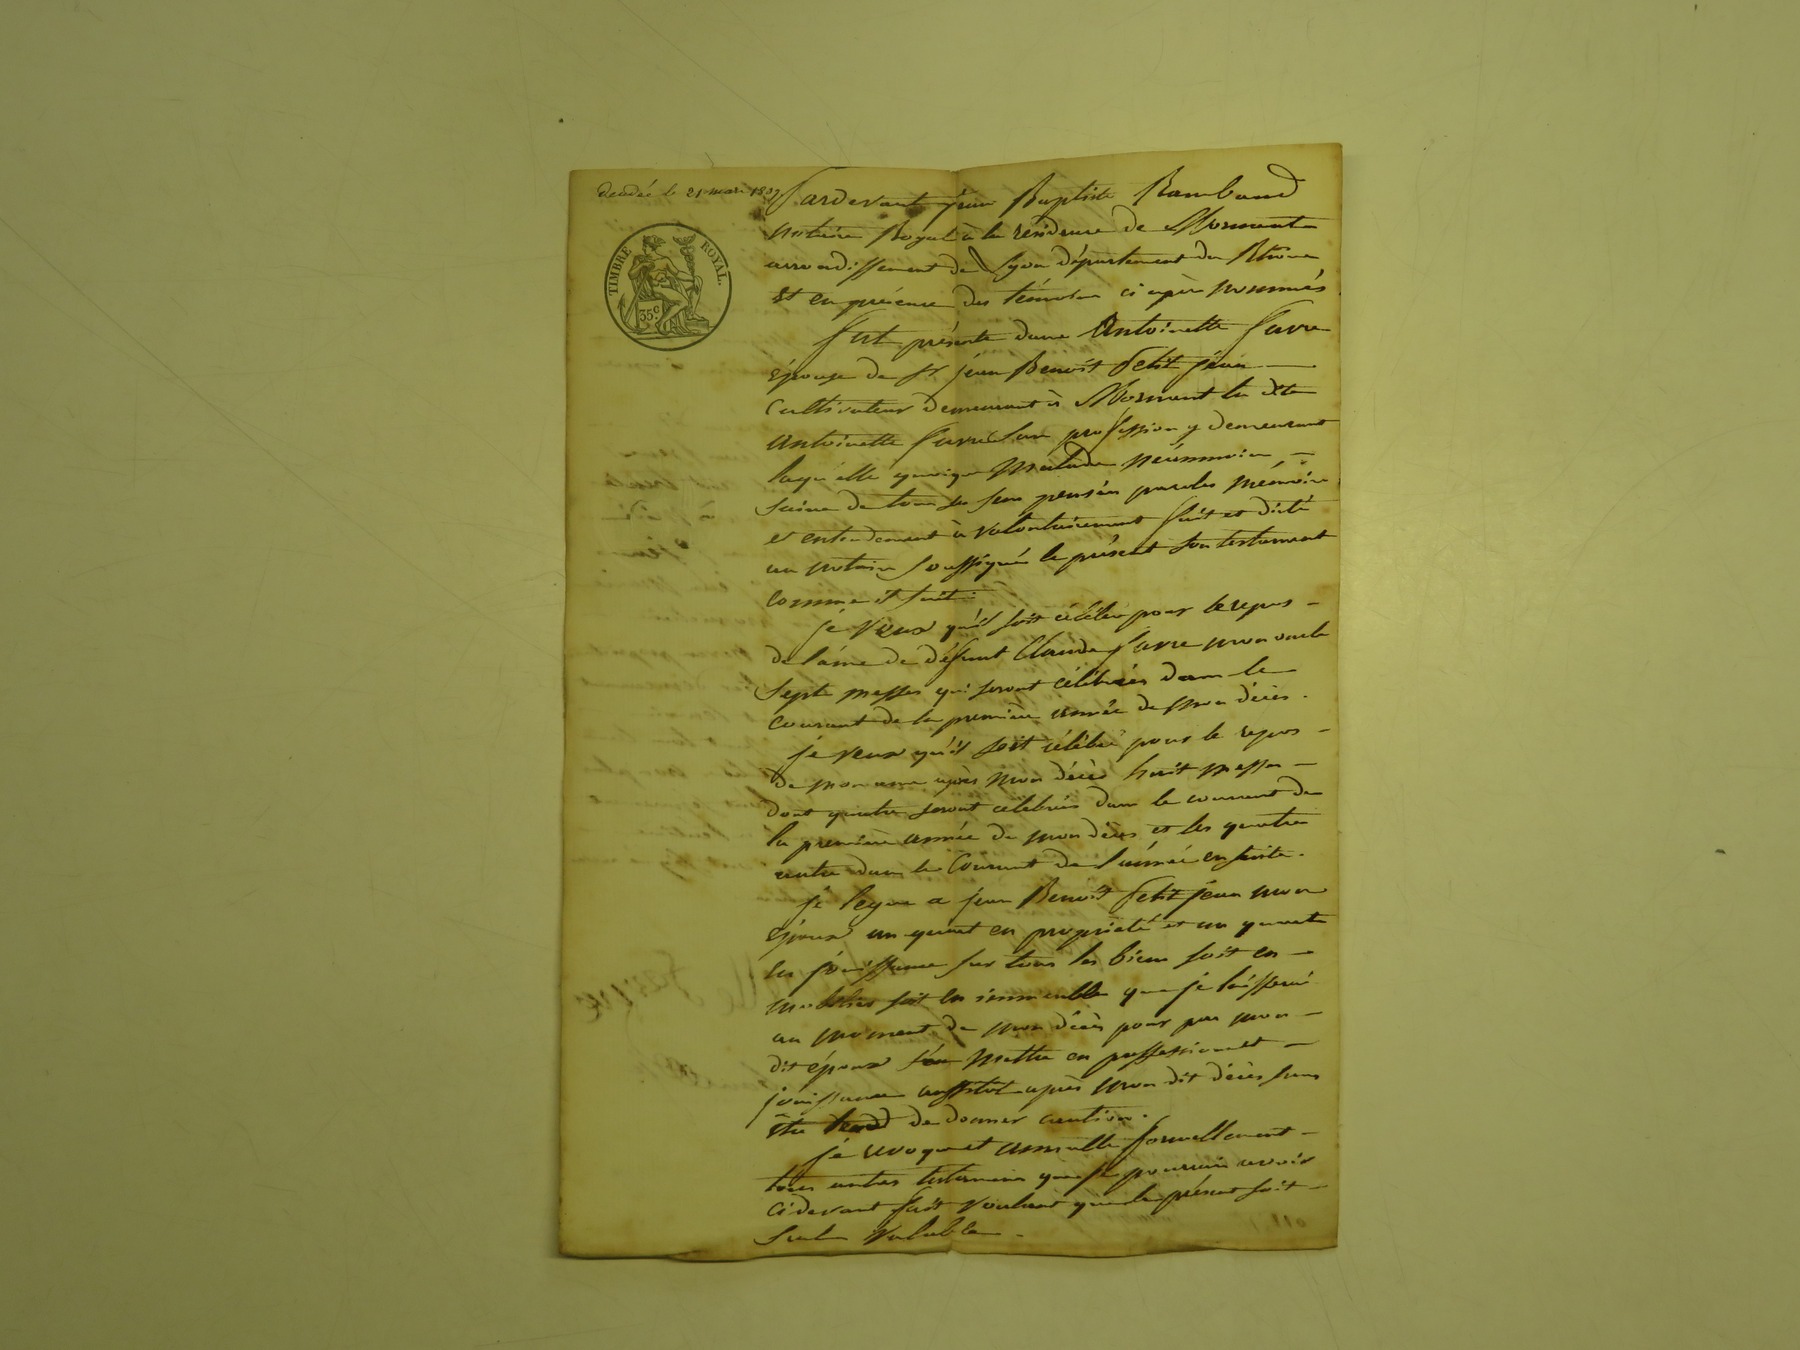 décédée le 21 mars 1837
TIMBRE ROYAL.
35 c
Pardevant jean Baptiste Rambaud
notaire Royal à la résidence de Mornant
arrondissement de Lyon département du Rhône
et en présence des témoins ci après nommés
fut présente dame Antoinette favre
épouse de Sr jean Benoit Petit jean
Cultivateur demeurant à Mornant la dite
Antoinette favre Sans profession y demeurant
laquelle quoique Malade néanmoins
saine de tous ses sens pensées paroles mémoire
et entendement à volontairement fait et dicté
au notaire soussigné le présent son testament
comme il suit.
je veux qu'il soit célébré pour le repos
de l'âme de défunt Claude favre mon oncle
Sept messes qui seront célébrées dans le
Courant de la première année de mon décès.
je veux qu'il soit célébré pour le repos
de mon ame après mon décès huit messes
dont quatre seront célébrées dans le courant de
la première année de mon décès et les quatre
autre dans le Courant de l'année en suite.
je legue a jean Benoit Petit jean mon
époux un quart en propriété et un quart
en jouissance sur tous les biens soit en
mobilier soit en immeuble que je laisserai
au moment de mon décès pour par mon
dit époux s'en mettre en possession et
jouissance aussitot après mon dit décès sans
être tenu de donner caution.
je revoque et annulle formellement
tous autres testamens que je pourrais avoir
cidevant fait voulant que le présent soit
seul valable.